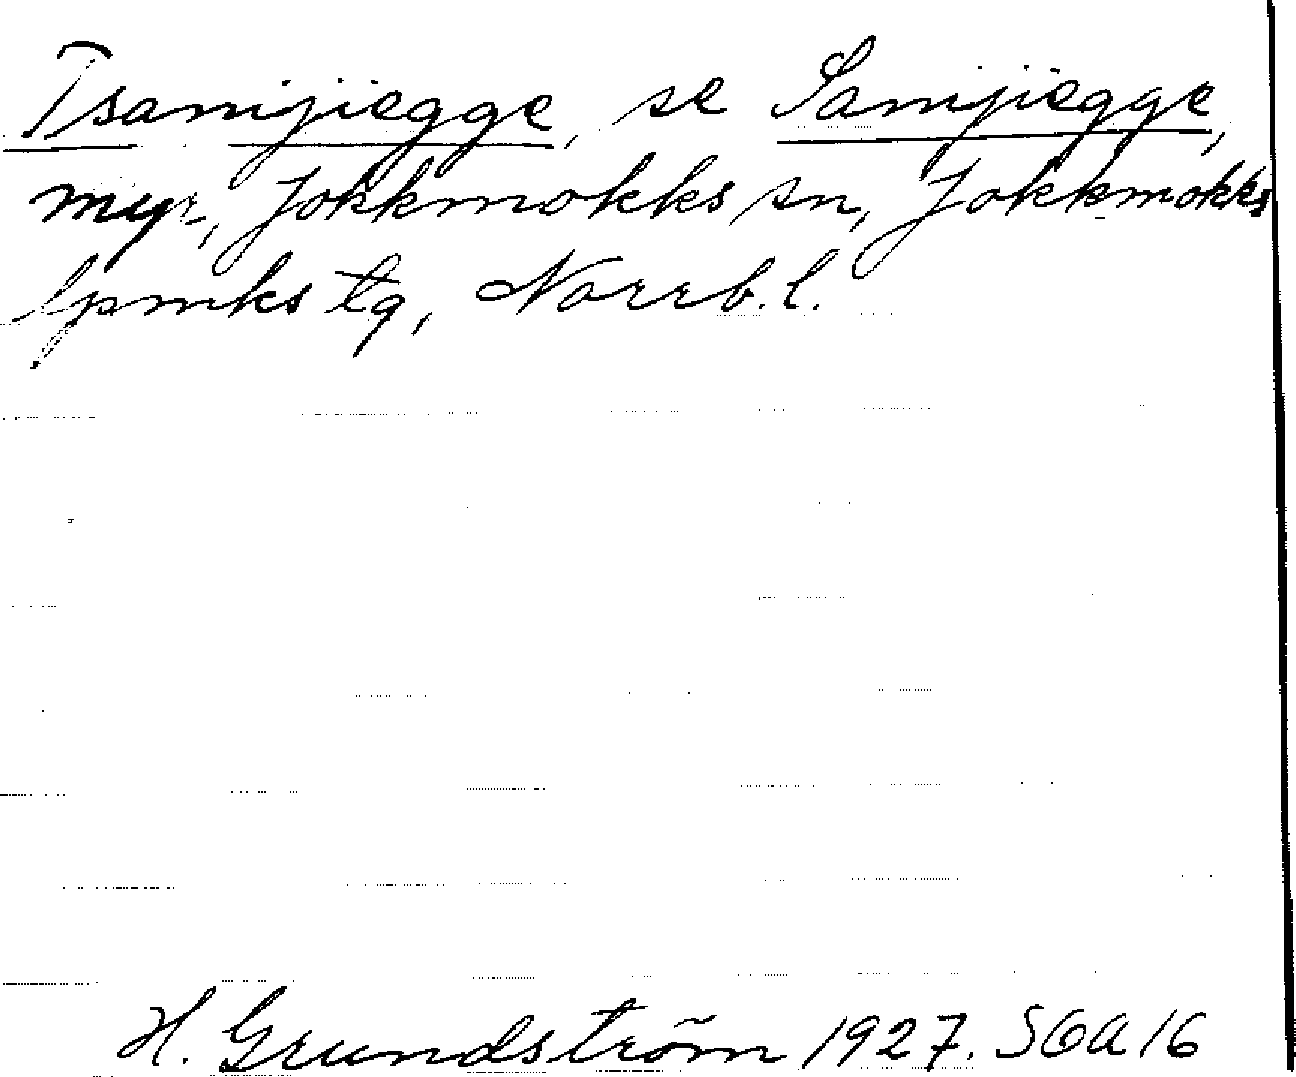 Tsamjiegge, se Samjiegge,
myr, Jokkmokks sn, Jokkmokks
lpmks tg, Norrb. l.
H. Grundström 1927. SOA 16